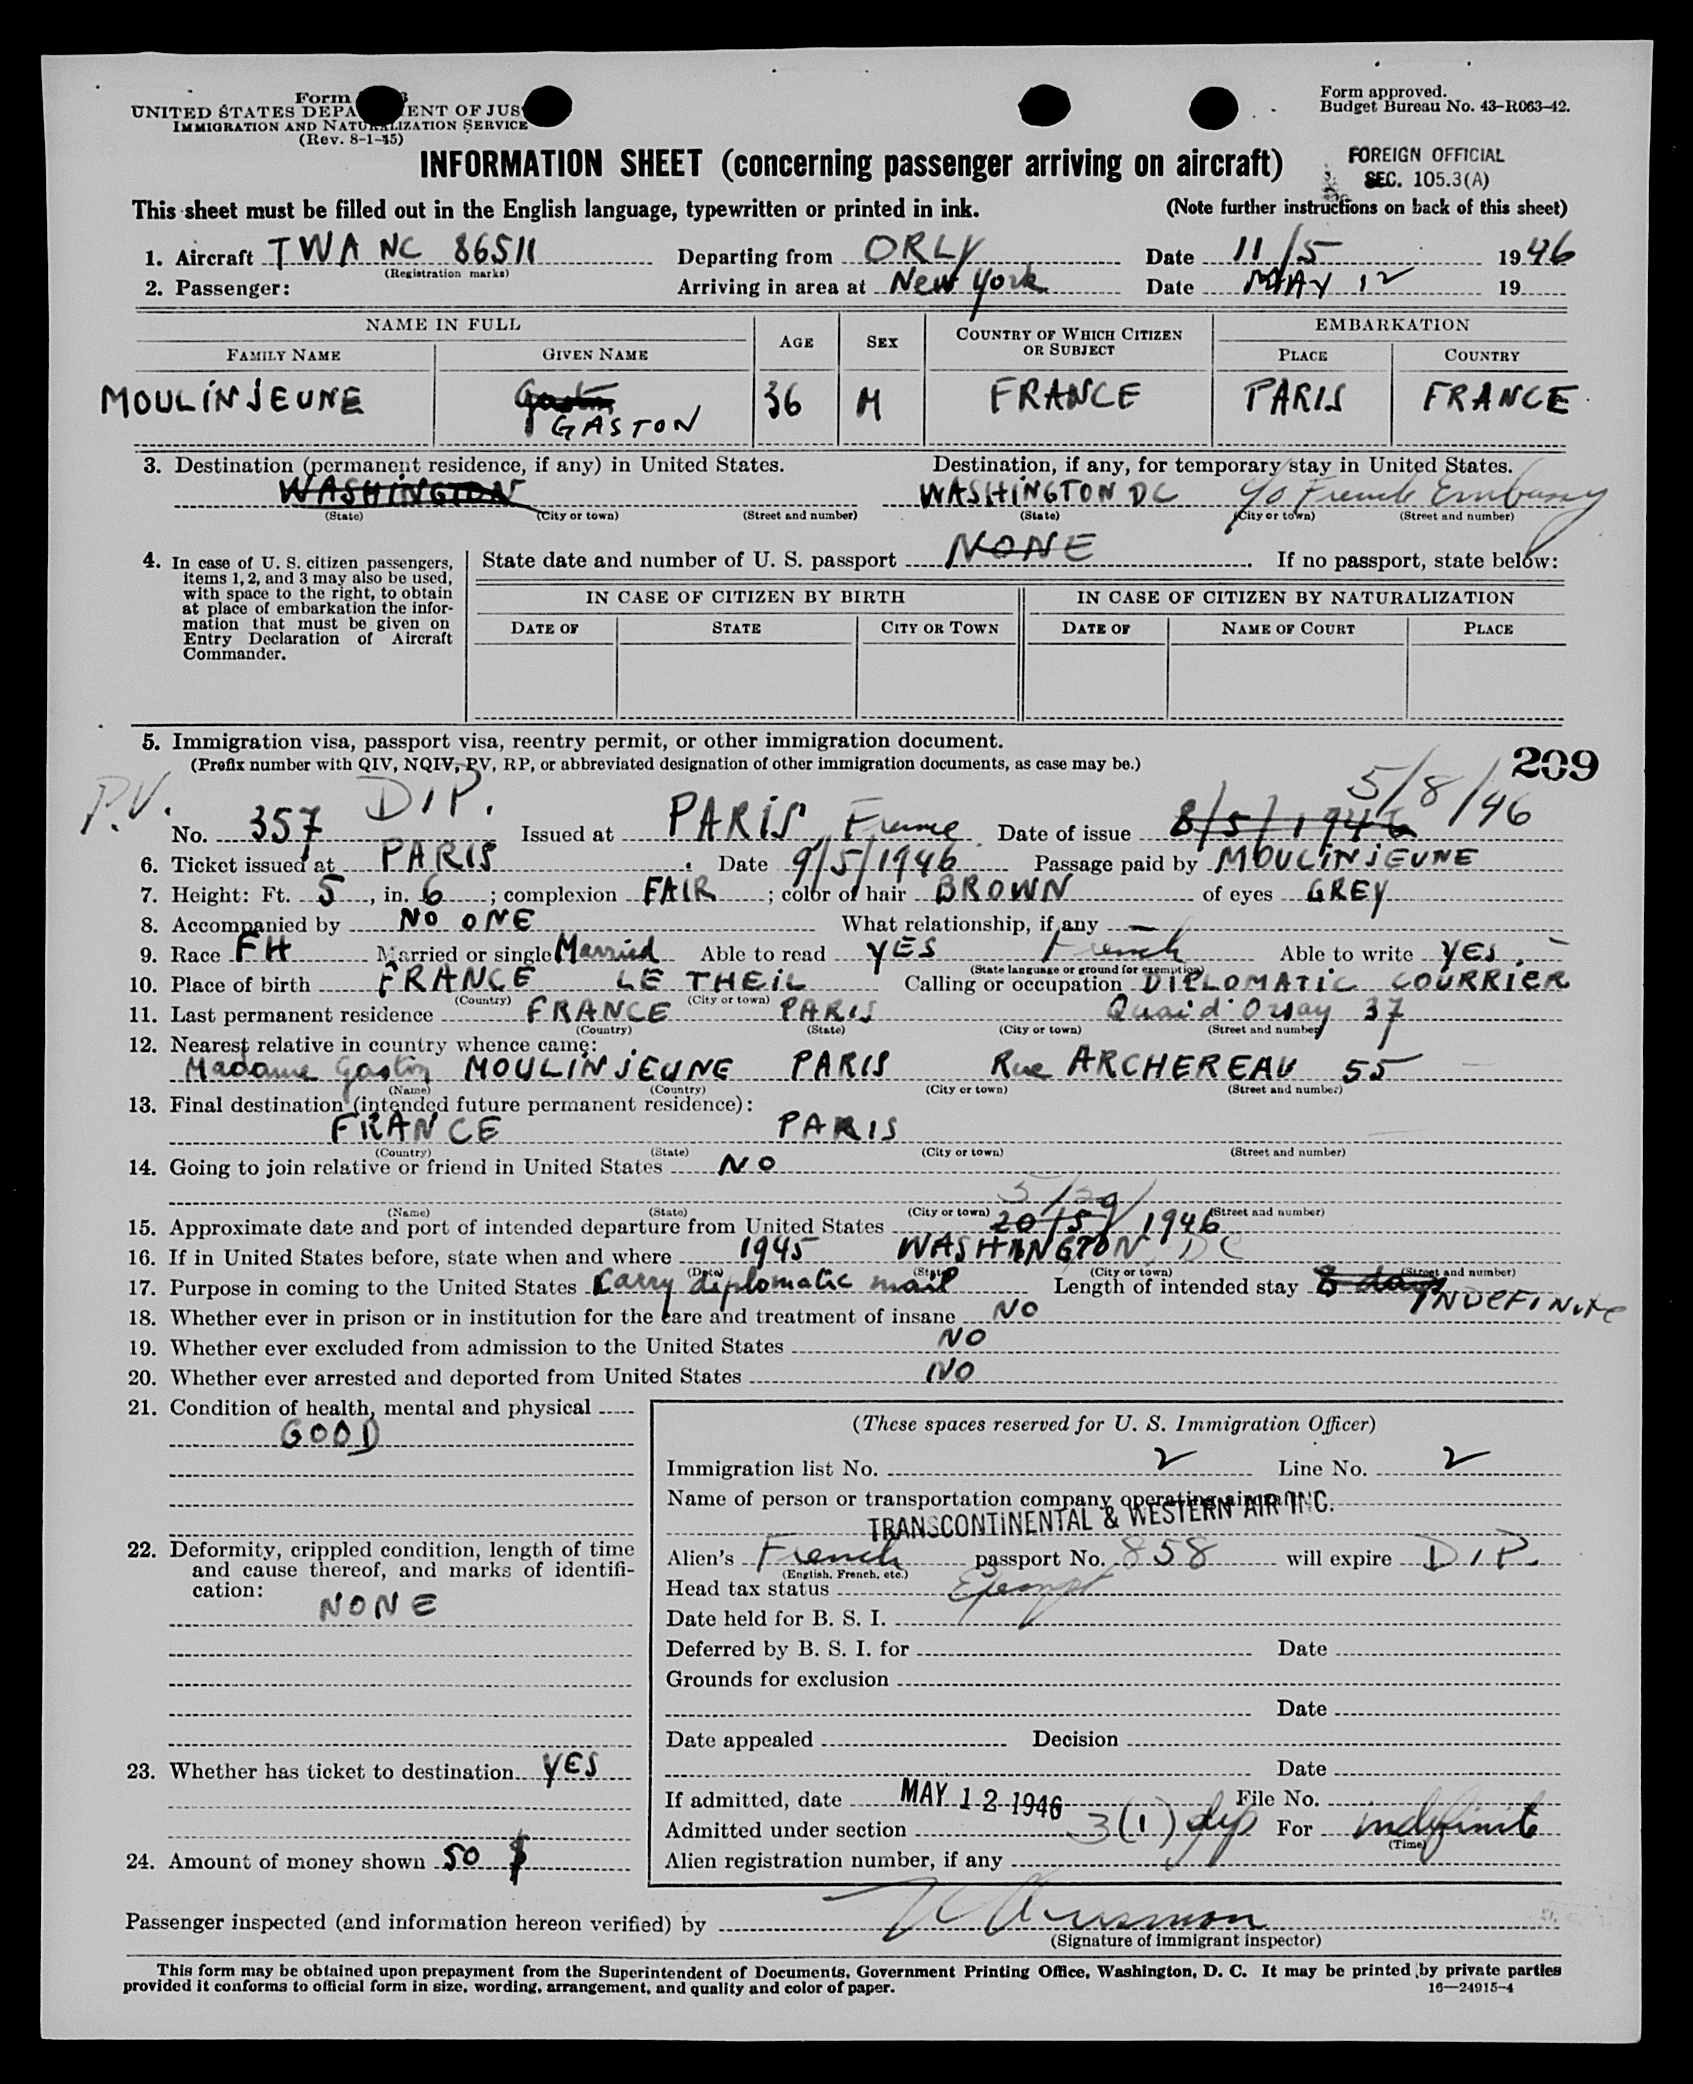 Form
UNITED STATES DEPA ENT OF JUS
IMMIGRATION AND NATURALIZATION SERVICE
(Rev. 8-1-45)
Form approved.
Budget Bureau No. 43-R063-42.
INFORMATION SHEET (concerning passenger arriving on aircraft)
FOREIGN OFFICIAL
SEC. 105.3(A)
This sheet must be filled out in the English language, typewritten or printed in ink. (Note further instructions on back of this sheet)
1. Aircraft TWA NC 86511 Departing from ORLY Date 11/5 1946
(Registration marks)
2. Passenger: Arriving in area at New York Date MAY 12 19
NAME IN FULL AGE SEX COUNTRY OF WHICH CITIZEN OR SUBJECT EMBARKATION
FAMILY NAME GIVEN NAME PLACE COUNTRY
MOULINJEUNE Gaston 36 M FRANCE PARIS FRANCE
GASTON
3. Destination (permanent residence, if any) in United States. Destination, if any, for temporary stay in United States.
WASHINGTON WASHINGTON DC c/o French Embassy
(State) (City or town) (Street and number) (State) (City or town) (Street and number)
4. In case of U. S. citizen passengers, items 1, 2, and 3 may also be used, with space to the right, to obtain at place of embarkation the information that must be given on Entry Declaration of Aircraft Commander.
State date and number of U. S. passport NONE If no passport, state below:
IN CASE OF CITIZEN BY BIRTH IN CASE OF CITIZEN BY NATURALIZATION
DATE OF STATE CITY OR TOWN DATE OF NAME OF COURT PLACE
5. Immigration visa, passport visa, reentry permit, or other immigration document.
(Prefix number with QIV, NQIV, PV, RP, or abbreviated designation of other immigration documents, as case may be.)
209
P.V. DIP. 5/8/46
No. 357 Issued at PARIS France Date of issue 8/5/1946
6. Ticket issued at PARIS Date 9/5/1946 Passage paid by MOULINJEUNE
7. Height: Ft. 5, in. 6; complexion FAIR; color of hair BROWN of eyes GREY
8. Accompanied by NO ONE What relationship, if any —
9. Race FH Married or single Married Able to read YES French Able to write YES
(State language or ground for exemption)
10. Place of birth FRANCE LE THEIL Calling or occupation DIPLOMATIC COURRIER
(Country) (City or town)
11. Last permanent residence FRANCE PARIS Quai d'Orsay 37
(Country) (State) (City or town) (Street and number)
12. Nearest relative in country whence came:
Madame Gaston MOULINJEUNE PARIS Rue ARCHEREAU 55
(Name) (Country) (City or town) (Street and number)
13. Final destination (intended future permanent residence):
FRANCE PARIS
(Country) (State) (City or town) (Street and number)
14. Going to join relative or friend in United States NO
(Name) (State) (City or town) (Street and number)
5/29/
15. Approximate date and port of intended departure from United States 20/5/1946
16. If in United States before, state when and where 1945 WASHINGTON, DC
(Date) (State) (City or town) (Street and number)
17. Purpose in coming to the United States Carry diplomatic mail Length of intended stay 8 days
INDEFINITE
18. Whether ever in prison or in institution for the care and treatment of insane NO
19. Whether ever excluded from admission to the United States NO
20. Whether ever arrested and deported from United States NO
21. Condition of health, mental and physical
GOOD
22. Deformity, crippled condition, length of time and cause thereof, and marks of identification:
NONE
23. Whether has ticket to destination YES
24. Amount of money shown 50 $
(These spaces reserved for U. S. Immigration Officer)
Immigration list No. 2 Line No. 2
Name of person or transportation company operating aircraft
TRANSCONTINENTAL & WESTERN AIR INC.
Alien's French passport No. 858 will expire DIP.
(English, French, etc.)
Head tax status Exempt
Date held for B. S. I.
Deferred by B. S. I. for Date
Grounds for exclusion
Date
Date appealed Decision
Date
If admitted, date MAY 12 1946 File No.
Admitted under section 3(1) dip For indefinite
(Time)
Alien registration number, if any
Passenger inspected (and information hereon verified) by
(Signature of immigrant inspector)
This form may be obtained upon prepayment from the Superintendent of Documents, Government Printing Office, Washington, D. C. It may be printed by private parties
provided it conforms to official form in size, wording, arrangement, and quality and color of paper.
16—24915-4